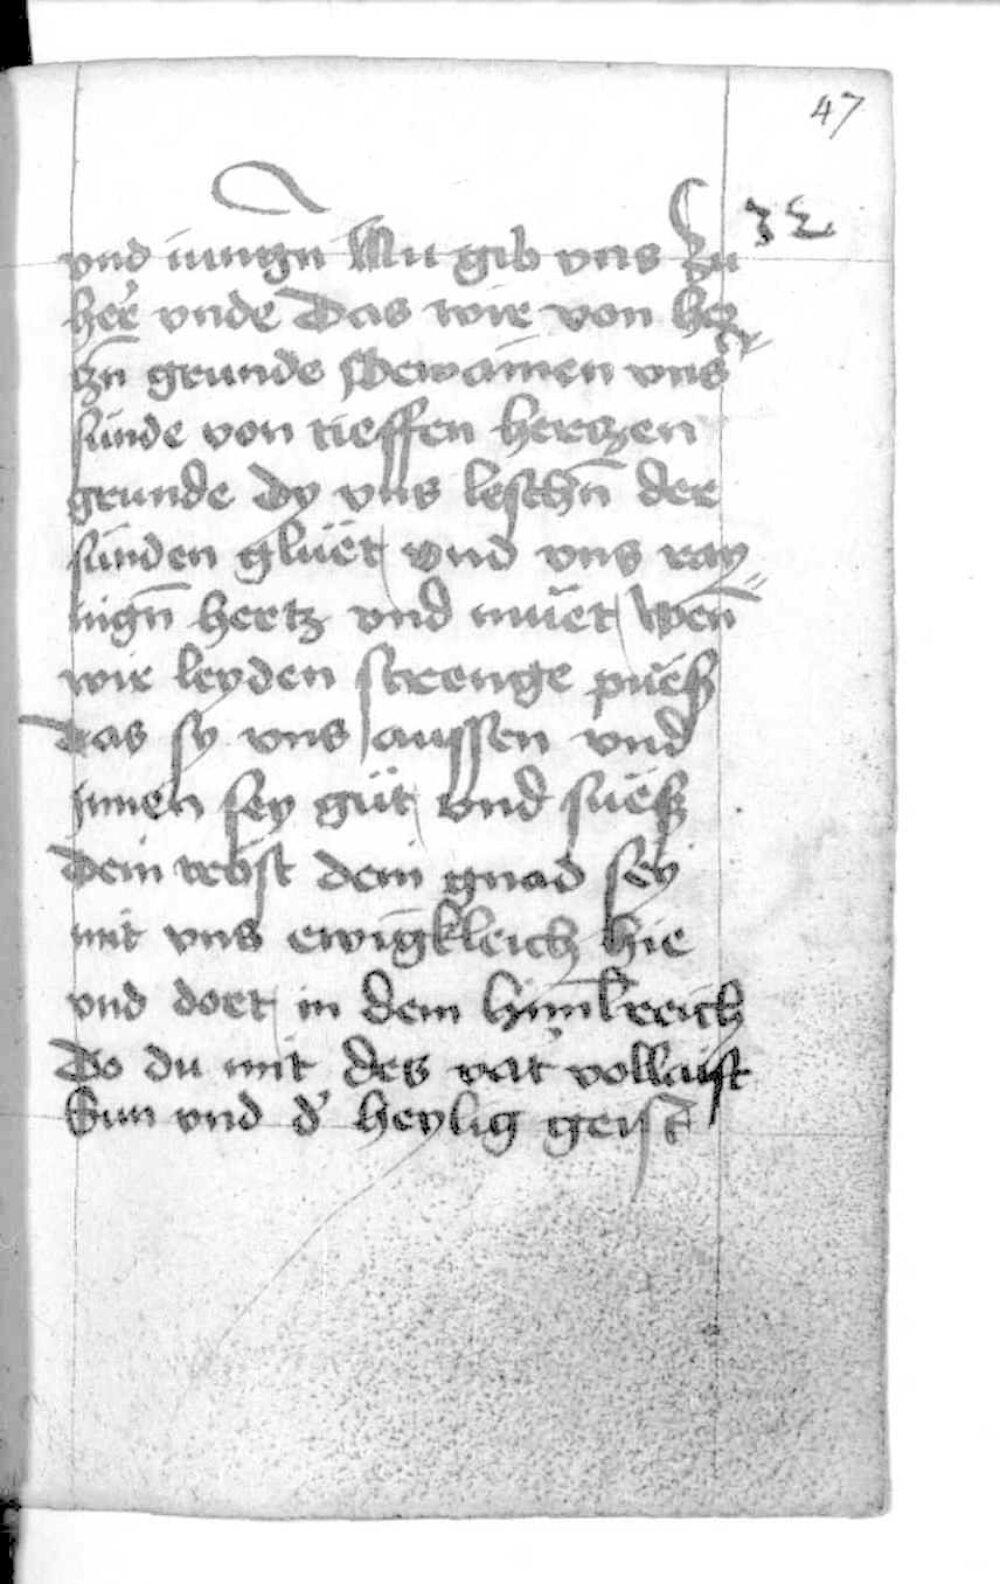 47
32
vnd iungn Nu gib vns zu
her vnde Das wir von her
tzn grunde Bewainen vns
sünde von tieffen hertzen
grunde Dy vns leschn̄ der
sünden glüet Vnd vns ray
nign̄ hertz vnd müet Wen̄
wir leyden strenge püeß
das sy vns aussen vnd
jnnen sey güt vnd süeß
Dein trost dein gnad sey
mit vns ewigkleich hie
vnd dort in dem himlreich
Do du mit des vat' vollaist
Sun vnd d' heylig geist